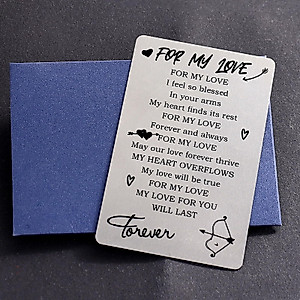 FOR MY LOVE
FOR MY LOVE
I feel so blessed
In your arms
My heart finds its rest
FOR MY LOVE
Forever and always
FOR MY LOVE
May our love forever thrive
MY HEART OVERFLOWS
My love will be true
FOR MY LOVE
MY LOVE FOR YOU
WILL LAST
Forever